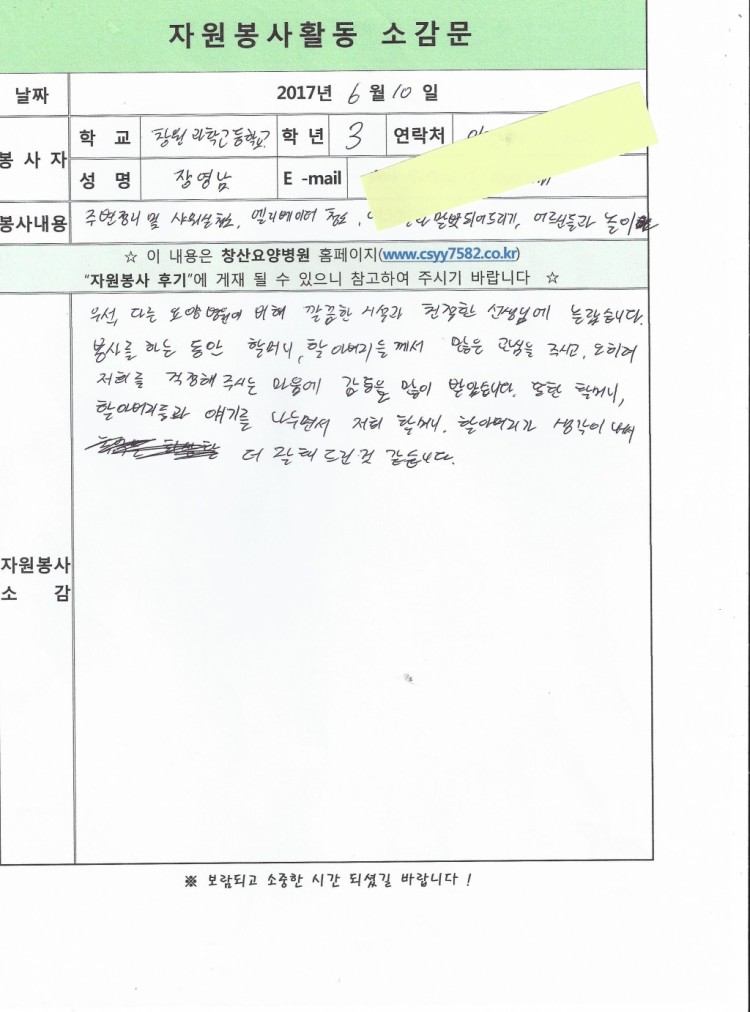 자원봉사활동 소감문
날짜 2017년 6 월 10 일
봉사자 학 교 창원과학고등학교 학 년 3 연락처
성 명 장영남 E -mail
봉사내용 주변정리 및 샤워실 청소, 엘리베이터 청소, 말벗 되어드리기, 어르신들과 놀이
☆ 이 내용은 창산요양병원 홈페이지(www.csyy7582.co.kr)
“자원봉사 후기”에 게재 될 수 있으니 참고하여 주시기 바랍니다 ☆
우선, 다른 요양병원에 비해 깔끔한 시설과 친절한 선생님에 놀랐습니다.
봉사를 하는 동안 할머니, 할아버지들께서 많은 관심을 주시고, 오히려
저희를 걱정해 주시는 마음에 감동을 많이 받았습니다. 또한 할머니,
할아버지들과 얘기를 나누면서 저희 할머니, 할아버지가 생각이 나서
더 잘해 드린 것 같습니다.
자원봉사
소 감
※ 보람되고 소중한 시간 되셨길 바랍니다 !